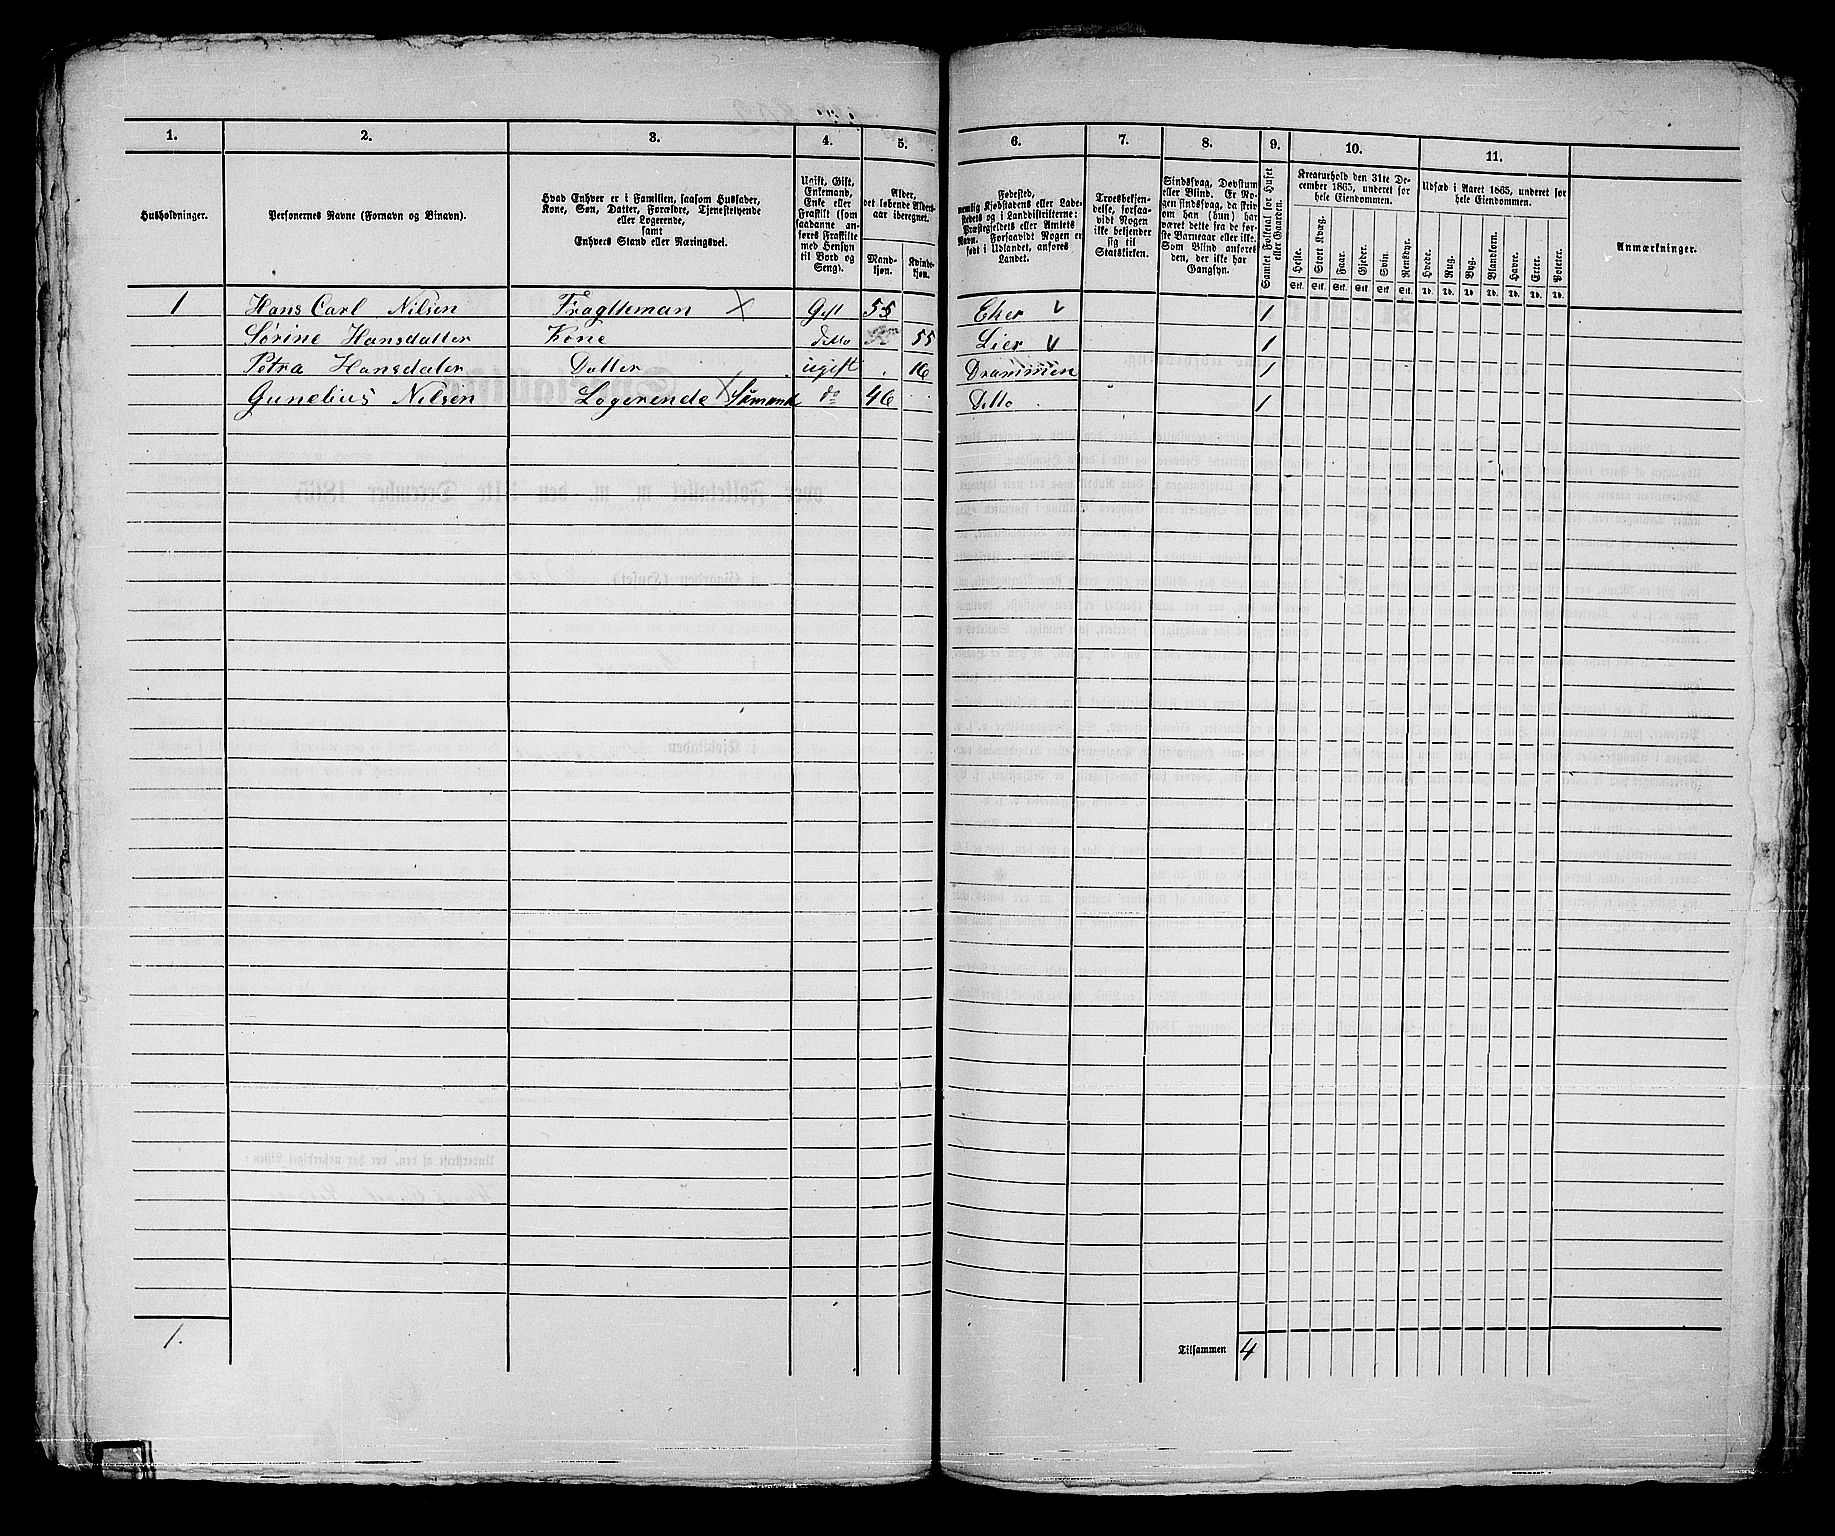 1. 2. 3. 4. 5. 6. 7. 8. 9. 10. 11.
Husholdninger.
Personernes Navne (Fornavn og Binavn).
Hvad Enhver er i Familien, saasom Husfader,
Kone, Søn, Datter, Forældre, Tjenestetyende
eller Logerende,
samt
Enhvers Stand eller Næringsvei.
Ugift, Gift,
Enkemand,
Enke eller
Fraskilt (som
saadanne an-
føres Fraskilte
med Hensyn
til Bord og
Seng).
Alder,
det løbende Alders-
aar iberegnet.
Mand-
kjøn.
Kvinde-
kjøn.
Fødested,
nemlig Kjøbstadens eller Lade-
stedets og i Landdistrikterne:
Præstegjeldets eller Amtets
Navn. Forsaavidt Nogen er
født i Udlandet, anføres
Landet.
Troesbekjen-
delse, forsaa-
vidt Nogen
ikke bekjender
sig til
Statskirken.
Sindssvag, Døvstum
eller Blind. Er No-
gen sindssvag, da skrives
om han (hun) har
været dette fra de før-
ste Barneaar eller ikke.
Som Blind anføres
den, der ikke har
Gangsyn.
Samlet Folketal for Huset
eller Gaarden.
Kreaturhold den 31te De-
cember 1865, underet for
hele Eiendommen.
Heste. Stort Kvæg. Faar. Gjeder. Svin. Rensdyr.
Stk. Stk. Stk. Stk. Stk. Stk.
Udsæd i Aaret 1865, underet for
hele Eiendommen.
Hvede. Rug. Byg. Blandkorn. Havre. Erter. Poteter.
Td. Td. Td. Td. Td. Td. Td.
Anmærkninger.
1 Hans Carl Nilsen Fragtteman X Gift 55 Eker v 1
Sørine Hansdatter Kone ditto 55 Lier v 1
Petra Hansdater Datter ugift 16 Drammen 1
Gunelius Nilsen Logerende X Sømand do 46 Ditto 1
1.
Tilsammen 4